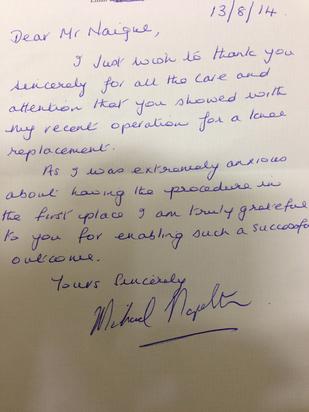 13/8/14.
Dear Mr Naique,
I Just wish to thank you
sincerely for all the care and
attention that you showed with
my recent operation for a knee
replacement.
As I was extremely anxious
about having the procedure in
the first place I am truly grateful
to you for enabling such a successful
outcome.
Yours Sincerely
Michael